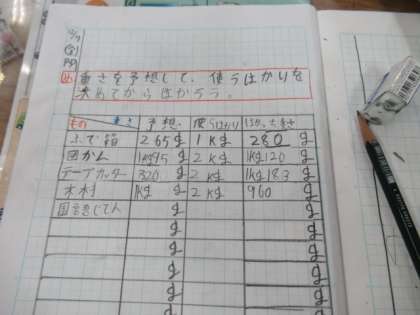 め 重さを予想して、使うはかりを
決めてからはかろう。
もの 重さ 予想 使うはかり はかった重さ
ふで箱 265g 1kg 280g
図かん 1kg95g 2kg 1kg120g
テープカッター 320g 2kg 1kg183g
木材 1kg g 2kg 960g
国語じてん g g
g g
g g
g g
g g
g g